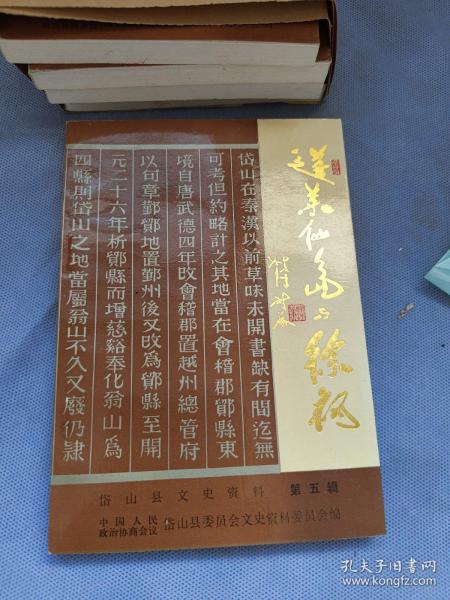 蓬莱仙岛与徐福
岱山在秦漢以前草昧未開書缺有間迄無
可考但約略計之其地當在會稽郡鄮縣東
境自唐武德四年改會稽郡置越州總管府
以句章鄞鄮地置鄞州後又改為鄮縣至開
元二十六年析鄮縣而增慈谿奉化翁山為
四縣則岱山之地當屬翁山不久又廢仍隸
岱山县文史资料 第五辑
中国人民政治协商会议 岱山县委员会文史资料委员会编
孔夫子旧书网
www.kongfz.com